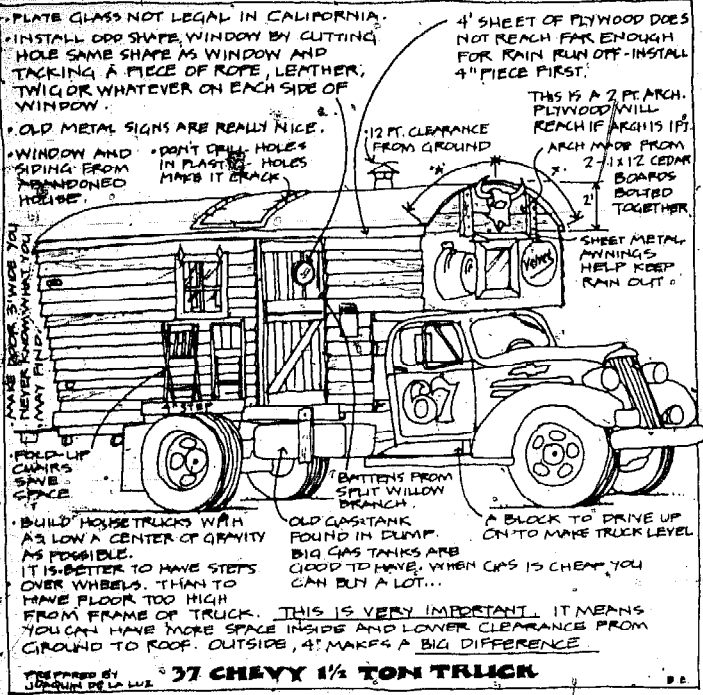 • PLATE GLASS NOT LEGAL IN CALIFORNIA.
• INSTALL ODD SHAPE WINDOW BY CUTTING
HOLE SAME SHAPE AS WINDOW AND
TACKING A PIECE OF ROPE, LEATHER,
TWIG OR WHATEVER ON EACH SIDE OF
WINDOW.
• OLD METAL SIGNS ARE REALLY NICE.
• WINDOW AND
SIDING FROM
ABANDONED
HOUSE.
• DON'T DRILL HOLES
IN PLASTIC HOLES
MAKE IT CRACK
4' SHEET OF PLYWOOD DOES
NOT REACH FAR ENOUGH
FOR RAIN RUN OFF - INSTALL
4" PIECE FIRST.
THIS IS A 2 FT. ARCH.
PLYWOOD WILL
REACH IF ARCH IS 1 FT.
• 12 FT. CLEARANCE
FROM GROUND
ARCH MADE FROM
2 - 1 x 12 CEDAR
BOARDS
BOLTED
TOGETHER
2'
SHEET METAL
AWNINGS
HELP KEEP
RAIN OUT.
Velvet
• MAKE DOOR 3' WIDE YOU
NEVER KNOW WHAT YOU
MAY FIND.
67
STEP
• FOLD-UP
CHAIRS
SAVE
SPACE
BATTENS FROM
SPLIT WILLOW
BRANCH.
• BUILD HOUSETRUCKS WITH
AS LOW A CENTER OF GRAVITY
AS POSSIBLE.
IT IS BETTER TO HAVE STEPS
OVER WHEELS. THAN TO
HAVE FLOOR TOO HIGH
FROM FRAME OF TRUCK. THIS IS VERY IMPORTANT. IT MEANS
YOU CAN HAVE MORE SPACE INSIDE AND LOWER CLEARANCE FROM
GROUND TO ROOF. OUTSIDE, 4" MAKES A BIG DIFFERENCE
OLD GAS TANK
FOUND IN DUMP.
BIG GAS TANKS ARE
GOOD TO HAVE. WHEN GAS IS CHEAP YOU
CAN BUY A LOT...
A BLOCK TO DRIVE UP
ON TO MAKE TRUCK LEVEL
PREPARED BY
JOAQUIN DE LA LUZ
37 CHEVY 1½ TON TRUCK